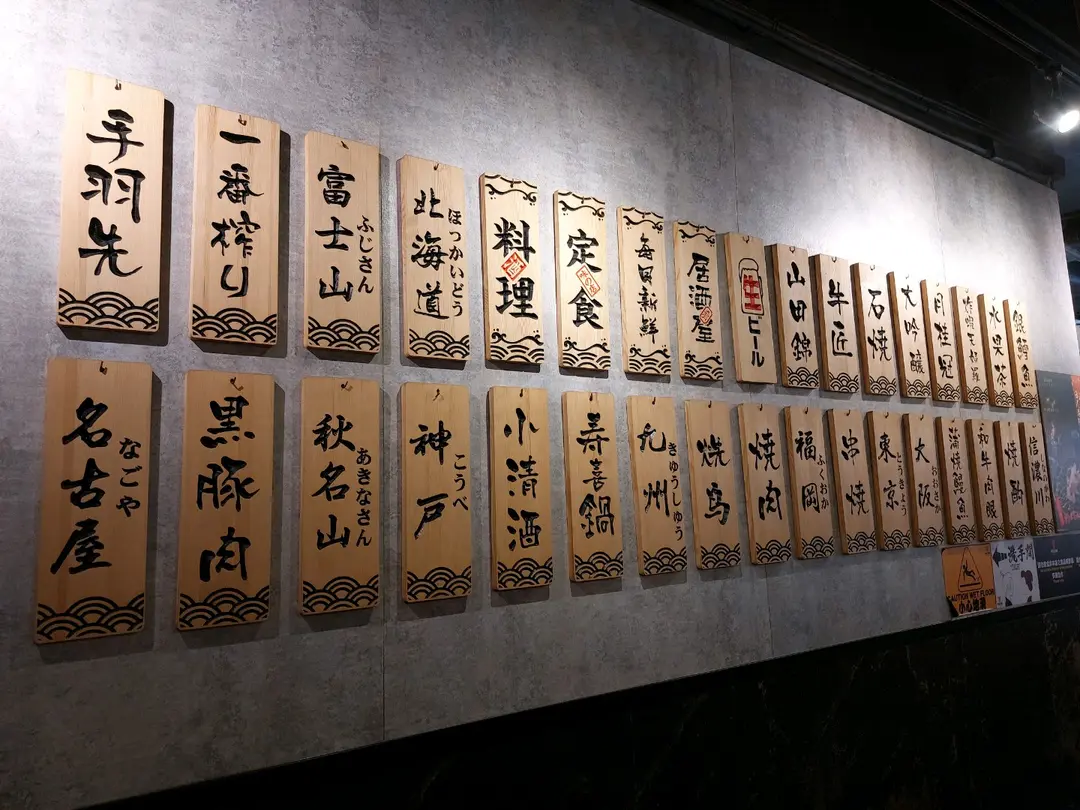 手羽先
一番搾り
富士山
ふじさん
北海道
ほっかいどう
料理
定食
毎日新鮮
居酒屋
生ビール
山田錦
牛匠
石焼
大吟醸
月桂冠
水果茶
鰻鱺魚
名古屋
なごや
黒豚肉
秋名山
あきなさん
神戸
こうべ
小清酒
寿喜鍋
九州
きゅうしゅう
焼鸟
焼肉
福岡
ふくおか
串焼
東京
とうきょう
大阪
おおさか
蒲焼鰻魚
和牛肉眼
焼酌
信濃川
CAUTION WET FLOOR
小心地滑
洗手間